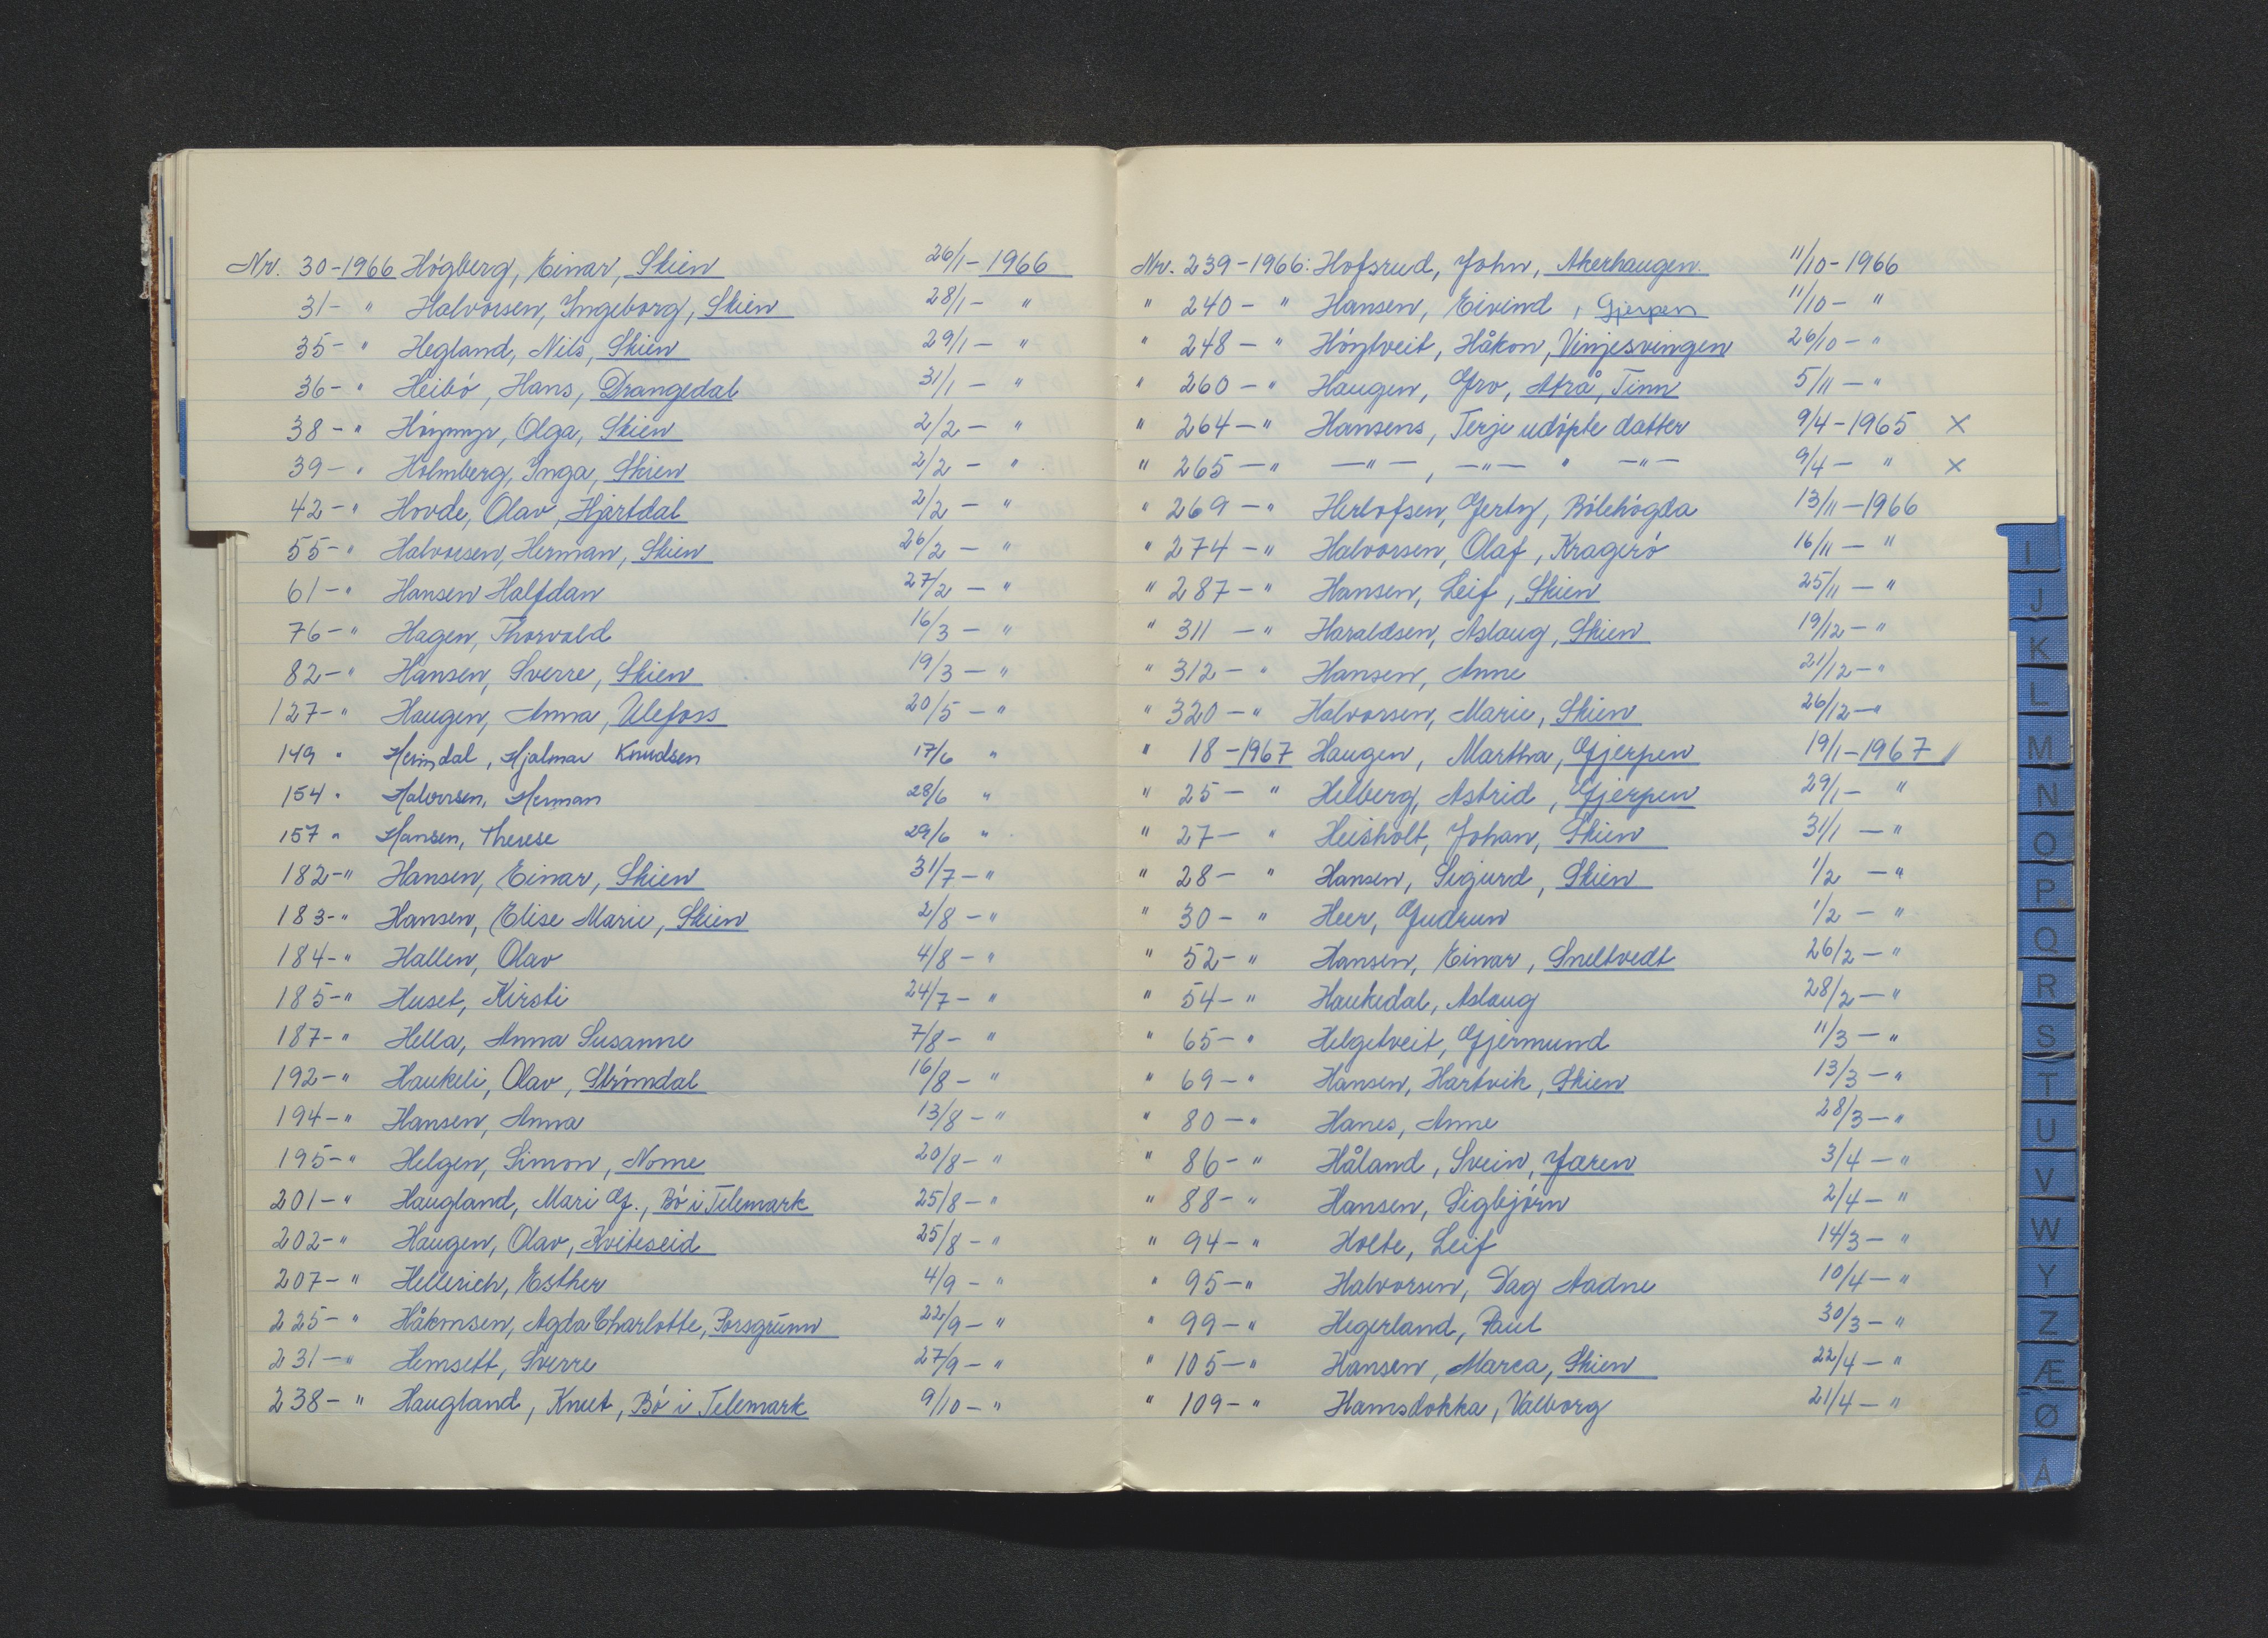 Nr. 30-1966 Høgberg, Einar, Skien 26/1 - 1966
31- " Halvorsen, Ingeborg, Skien 28/1 - "
35- " Hegland, Nils, Skien 29/1 - "
36- " Heibø, Hans, Drangedal 31/1 - "
38- " Høymyr, Olga, Skien 2/2 - "
39- " Holmberg, Inga, Skien 2/2 - "
42- " Hovde, Olav, Hjartdal 2/2 - "
55- " Halvorsen, Herman, Skien 26/2 - "
61- " Hansen Halfdan 27/2 - "
76- " Hagen, Thorvald 16/3 - "
82- " Hansen, Sverre, Skien 19/3 - "
127- " Haugen, Anna, Ulefoss 20/5 - "
149 " Heimdal, Hjalmar Knudsen 17/6 "
154 " Halvorsen, Herman 28/6 "
157 " Hansen, Therese 29/6 "
182- " Hansen, Einar, Skien 31/7 - "
183- " Hansen, Elise Marie, Skien 2/8 - "
184- " Hallen, Olav 4/8 - "
185- " Huset, Kirsti 24/7 - "
187- " Hella, Anna Susanne 7/8 - "
192- " Haukeli, Olav, Strømdal 16/8 - "
194- " Hansen, Anna 13/8 - "
195- " Helgen, Simon, Nome 20/8 - "
201- " Haugland, Mari G., Bø i Telemark 25/8 - "
202- " Haugen, Olav, Kviteseid 25/8 - "
207- " Hellerich, Esther 4/9 - "
225- " Håkonsen, Agda Charlotte, Porsgrunn 22/9 - "
231- " Hemsett, Sverre 27/9 - "
238- " Haugland, Knut, Bø i Telemark 9/10 - "
Nr. 239-1966: Hofsrud, John, Akerhaugen. 11/10 - 1966
" 240 - " Hansen, Eivind, Gjerpen 11/10 - "
" 248 - " Høytveit, Håkon, Vinjesvingen 26/10 - "
" 260 - " Haugen, Gro, Atrå, Tinn 5/11 - "
" 264 - " Hansens, Terje udøpte datter 9/4 - 1965 x
" 265 - " -"-, -"- " -"- 9/4 - " x
" 269 - " Herlofsen, Gerty, Bølehøgda 13/11 - 1966
" 274 - " Halvorsen, Olaf, Kragerø 16/11 - "
" 287 - " Hansen, Leif, Skien 25/11 - "
" 311 - " Haraldsen, Aslaug, Skien 19/12 - "
" 312 - " Hansen, Anne 21/12 - "
" 320 - " Halvorsen, Marie, Skien 26/12 - "
" 18 - 1967 Haugen, Martha, Gjerpen 19/1 - 1967
" 25 - " Helberg, Astrid, Gjerpen 29/1 - "
" 27 - " Heisholt, Johan, Skien 31/1 - "
" 28 - " Hansen, Sigurd, Skien 1/2 - "
" 30 - " Heer, Gudrun 1/2 - "
" 52 - " Hansen, Einar, Sneltvedt 26/2 - "
" 54 - " Haukedal, Aslaug 28/2 - "
" 65 - " Helgetveit, Gjermund 11/3 - "
" 69 - " Hansen, Hartvik, Skien 13/3 - "
" 80 - " Hanes, Anne 28/3 - "
" 86 - " Håland, Svein, Jæren 3/4 - "
" 88 - " Hansen, Sigbjørn 2/4 - "
" 94 - " Holte, Leif 14/3 - "
" 95 - " Halvorsen, Dag Aadne 10/4 - "
" 99 - " Hegerland, Paul 30/3 - "
" 105 - " Hansen, Marea, Skien 22/4 - "
" 109 - " Hamsdokka, Valborg 21/4 - "
I
J
K
L
M
N
O
P
Q
R
S
T
U
V
W
Y
Z
Æ
Ø
Å